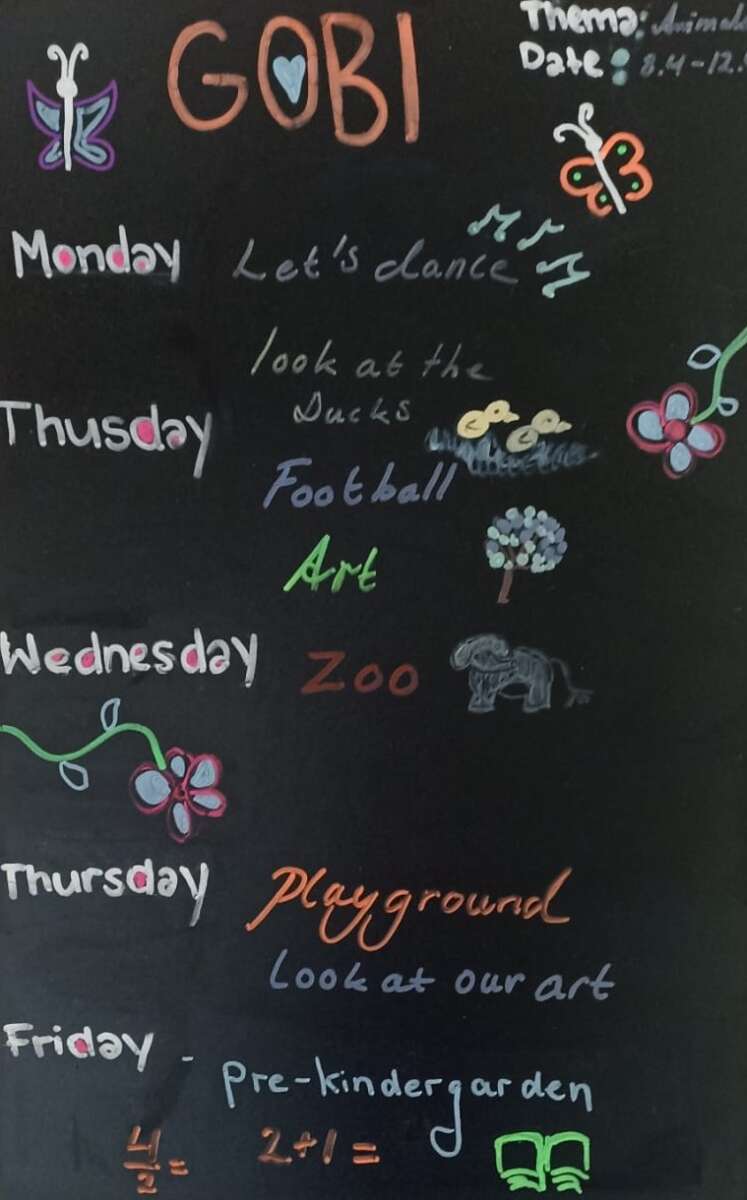 GOBI
Thema: Animals
Date: 8.4-12.
Monday Let's dance
look at the
Thusday Ducks
Football
Art
Wednesday Zoo
Thursday Playground
Look at our art
Friday - Pre-kindergarden
4/2= 2+1=